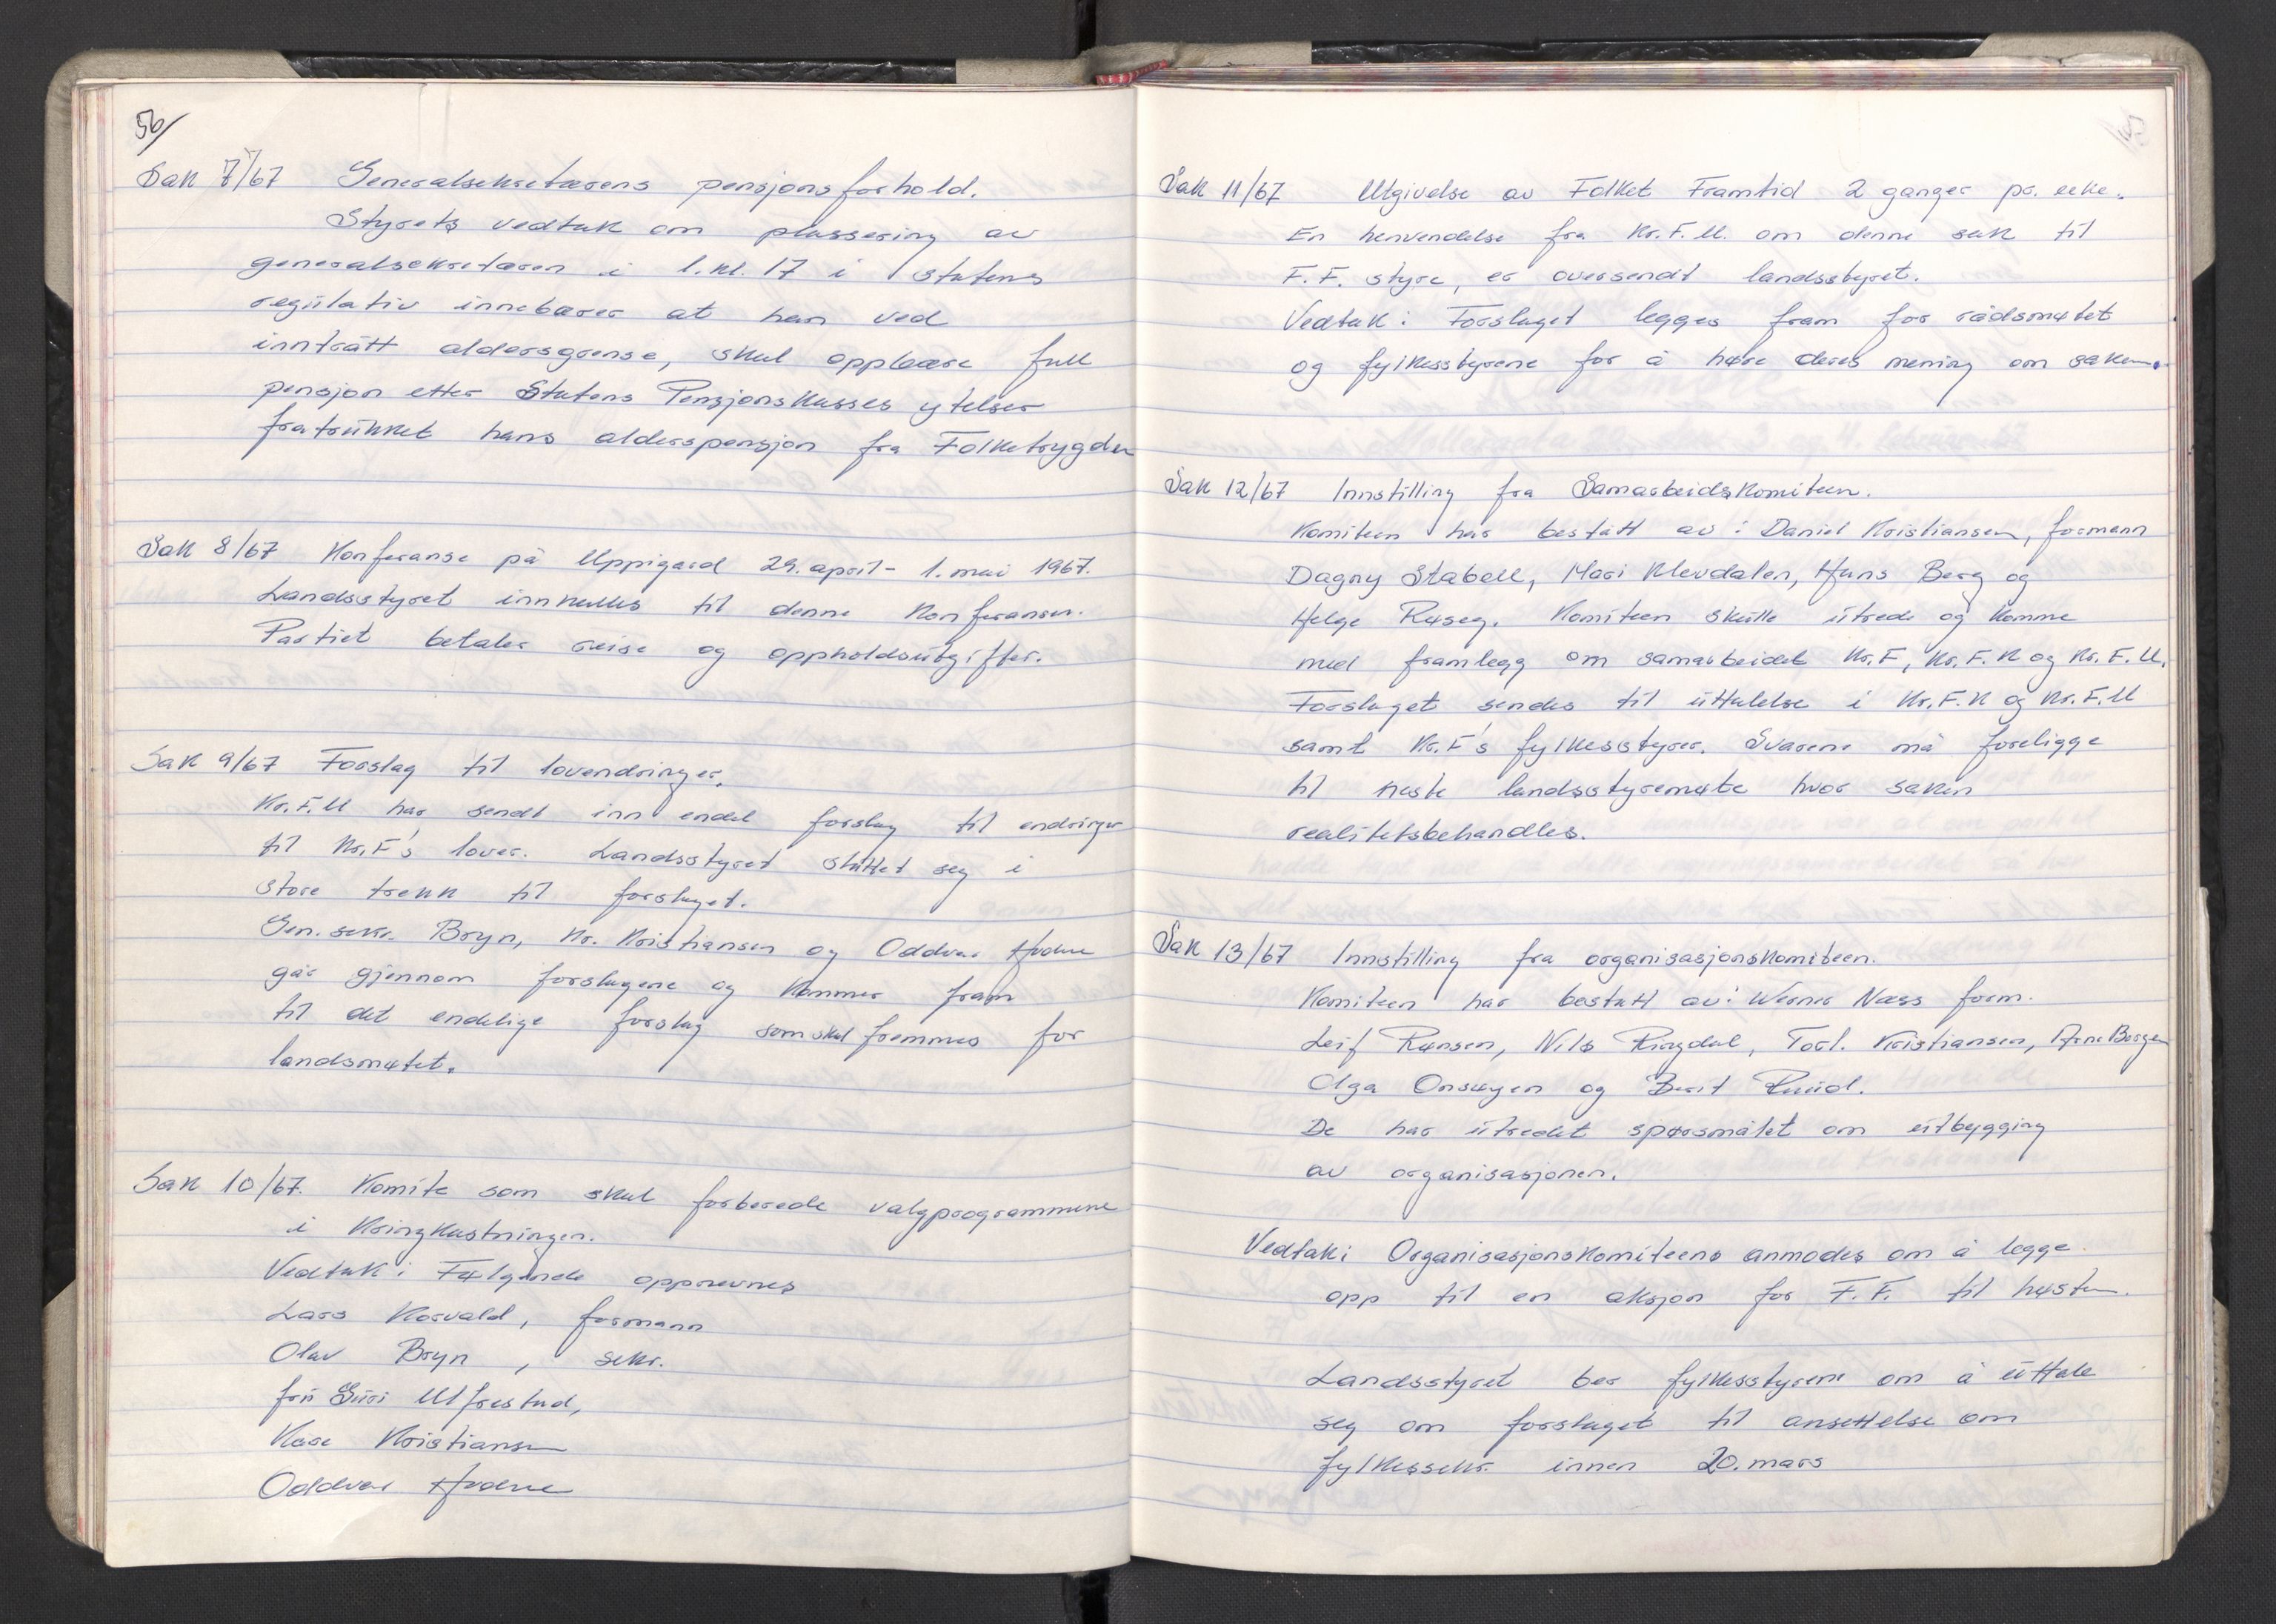 56/
Sak 7/67 Generalsekretærens pensjonsforhold.
Styrets vedtak om plassering av
generalsekretæren i l.kl. 17 i statens
regulativ innebærer at han ved
inntrått aldersgrense, skal oppbære full
pensjon etter Statens Pensjonskasses ytelser
fratrukket hans alderspensjon fra Folketrygden
Sak 8/67 Konferanse på Uppigard 29. april - 1. mai 1967.
Landsstyret innkalles til denne konferansen.
Partiet betaler reise og oppholdsutgifter.
Sak 9/67 Forslag til lovendringer.
Kr.F.U har sendt inn endel forslag til endringer
til Kr.F's lover. Landsstyret sluttet seg i
store trekk til forslaget.
Gen.sekr. Bryn, Kr. Kristiansen og Oddvar Hodne
går gjennom forslagene og kommer fram
til det endelige forslag som skal fremmes for
landsmøtet.
Sak 10/67. Komite som skal forberede valgprogrammene
i Kringkastningen.
Vedtak: Følgende oppnevnes
Lars Korvald, formann
Olav Bryn, sekr.
fru Guri Ulfrestad,
Kåre Kristiansen
Oddvar Hodne
Sak 11/67 Utgivelse av Folket Framtid 2 ganger pr. uke.
En henvendelse fra Kr.F.U. om denne sak til
F.F. styre, er oversendt landsstyret.
Vedtak: Forslaget legges fram for rådsmøtet
og fylkesstyrene for å høre deres mening om saken.
Sak 12/67 Innstilling fra Samarbeidskomiteen.
Komiteen har bestått av: Daniel Kristiansen, formann
Dagny Stabell, Mari Klevdalen, Hans Berg og
Helge Røseg. Komiteen skulle utrede og komme
med framlegg om samarbeidet Kr.F, Kr.F.K og Kr.F.U.
Forslaget sendes til uttalelse i Kr.F.K og Kr.F.U
samt Kr.F's fylkesstyrer. Svarene må foreligge
til neste landsstyremøte hvor saken
realitetsbehandles.
Sak 13/67 Innstilling fra organisasjonskomiteen.
Komiteen har bestått av: Werner Næss form.
Leif Rønsen, Nils Ringdal, Torl. Kristiansen, Arne Borgen
Olga Onsøyen og Berit Ruud.
De har utredet spørsmålet om utbygging
av organisasjonen.
Vedtak: Organisasjonskomiteens anmodes om å legge
opp til en aksjon for F.F. til høsten.
Landsstyret ber fylkesstyrene om å uttale
seg om forslaget til ansettelse om
fylkessekr. innen 20. mars